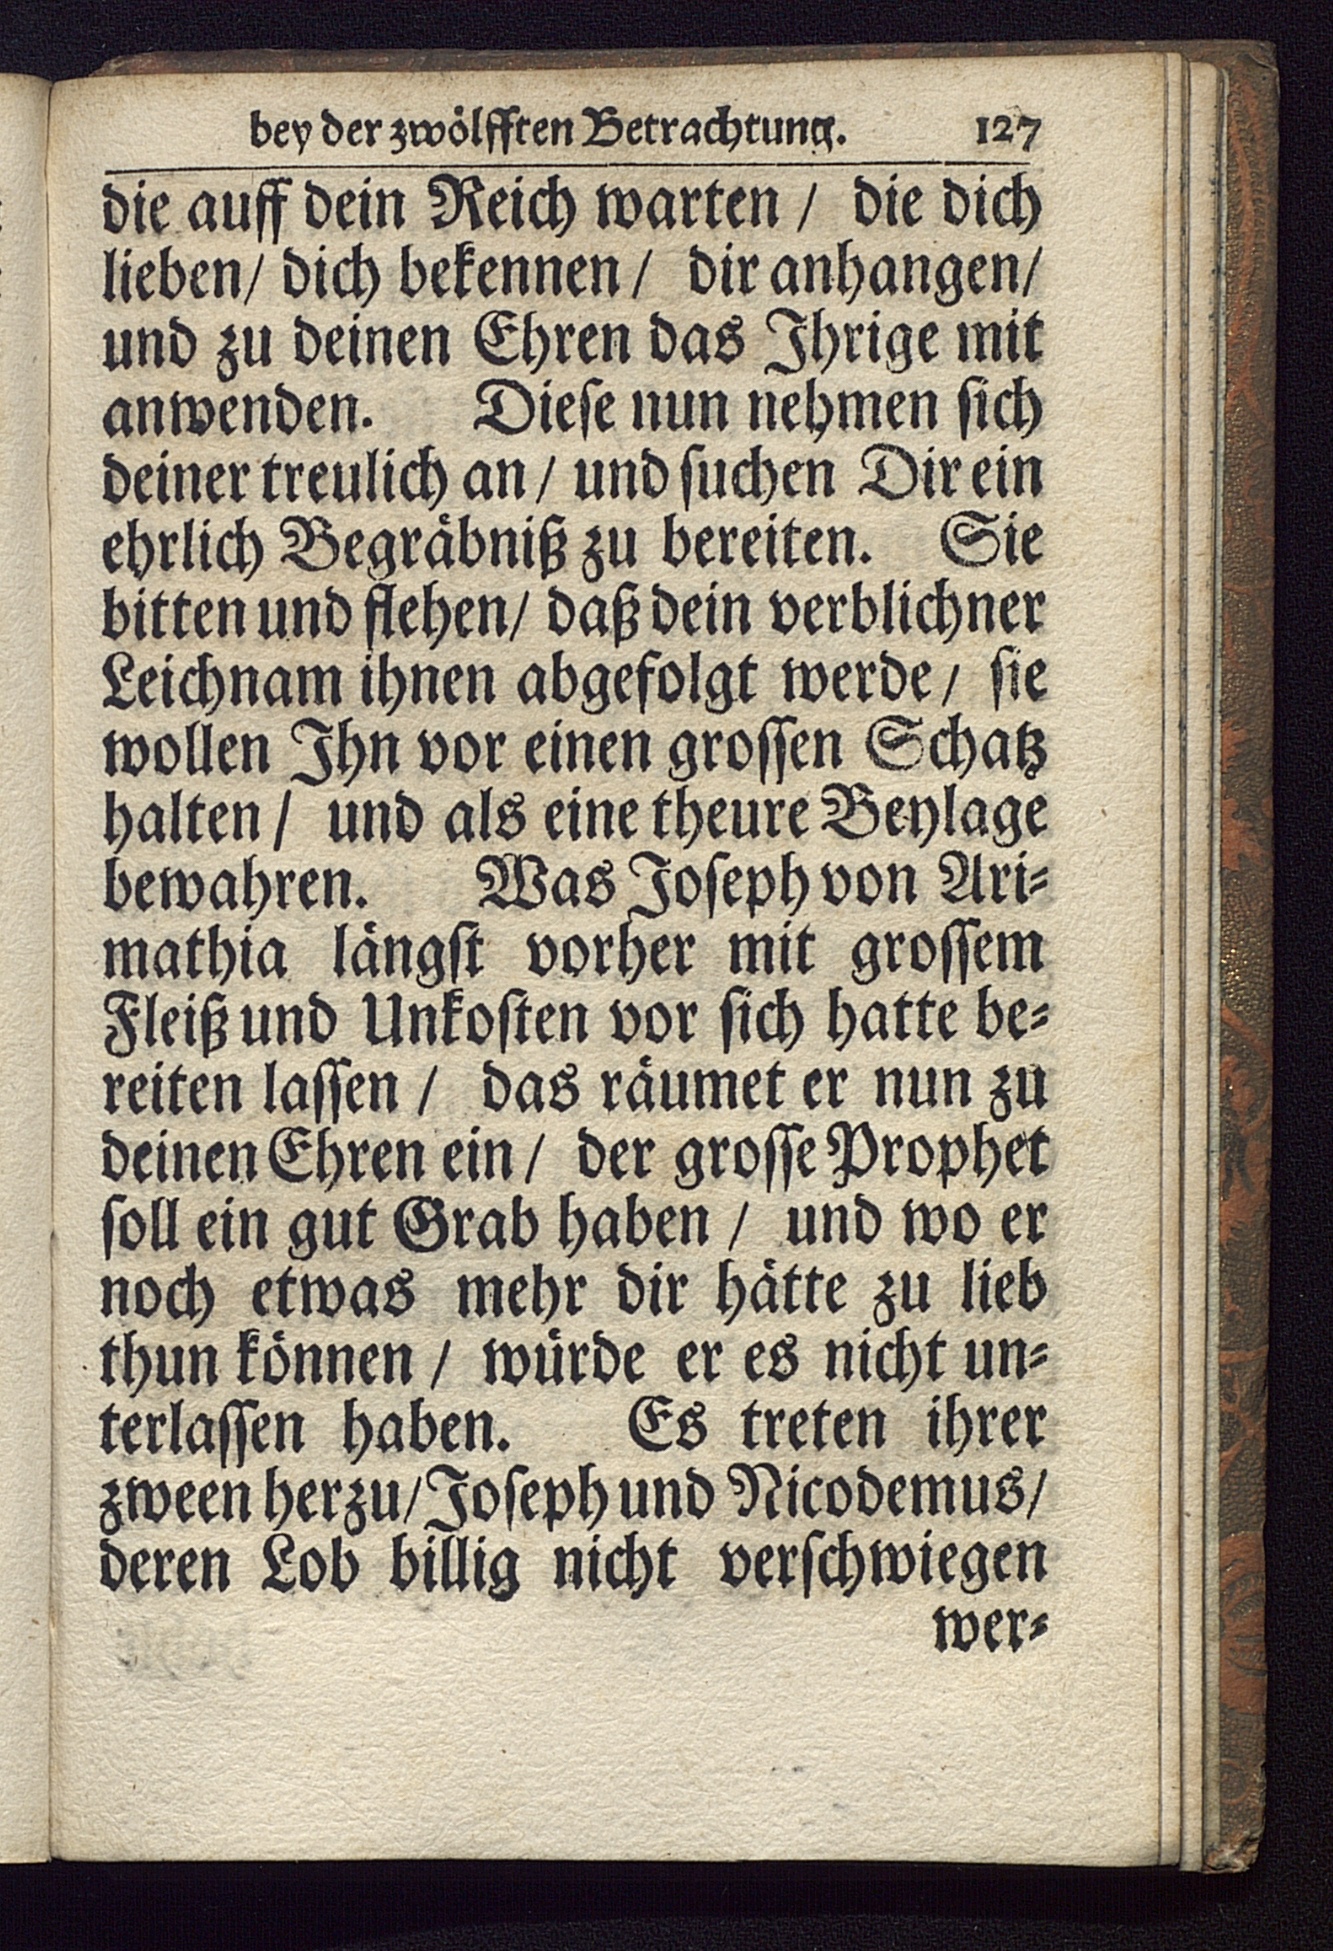 bey der zwölfften Betrachtung. 127
die auff dein Reich warten / die dich
lieben/ dich bekennen / dir anhangen/
und zu deinen Ehren das Ihrige mit
anwenden. Dieſe nun nehmen ſich
deiner treulich an / und ſuchen Dir ein
ehrlich Begräbniß zu bereiten. Sie
bitten und flehen/ daß dein verblichner
Leichnam ihnen abgefolgt werde / ſie
wollen Ihn vor einen groſſen Schatz
halten / und als eine theure Beylage
bewahren. Was Joſeph von Ari-
mathia längſt vorher mit groſſem
Fleiß und Unkoſten vor ſich hatte be-
reiten laſſen / das räumet er nun zu
deinen Ehren ein / der groſſe Prophet
ſoll ein gut Grab haben / und wo er
noch etwas mehr dir hätte zu lieb
thun können / würde er es nicht un-
terlaſſen haben. Es treten ihrer
zween herzu/ Joſeph und Nicodemus/
deren Lob billig nicht verſchwiegen
wer-